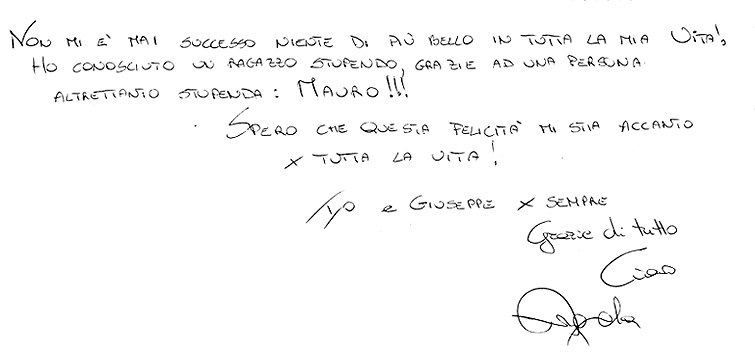 NON MI E' MAI SUCCESSO NIENTE DI PIÙ BELLO IN TUTTA LA MIA VITA!,
HO CONOSCIUTO UN RAGAZZO STUPENDO, GRAZIE AD UNA PERSONA
ALTRETTANTO STUPENDA: MAURO!!!
SPERO CHE QUESTA FELICITÀ MI STIA ACCANTO
X TUTTA LA VITA!
e GIUSEPPE X SEMPRE
Grazie di tutto
Ciao